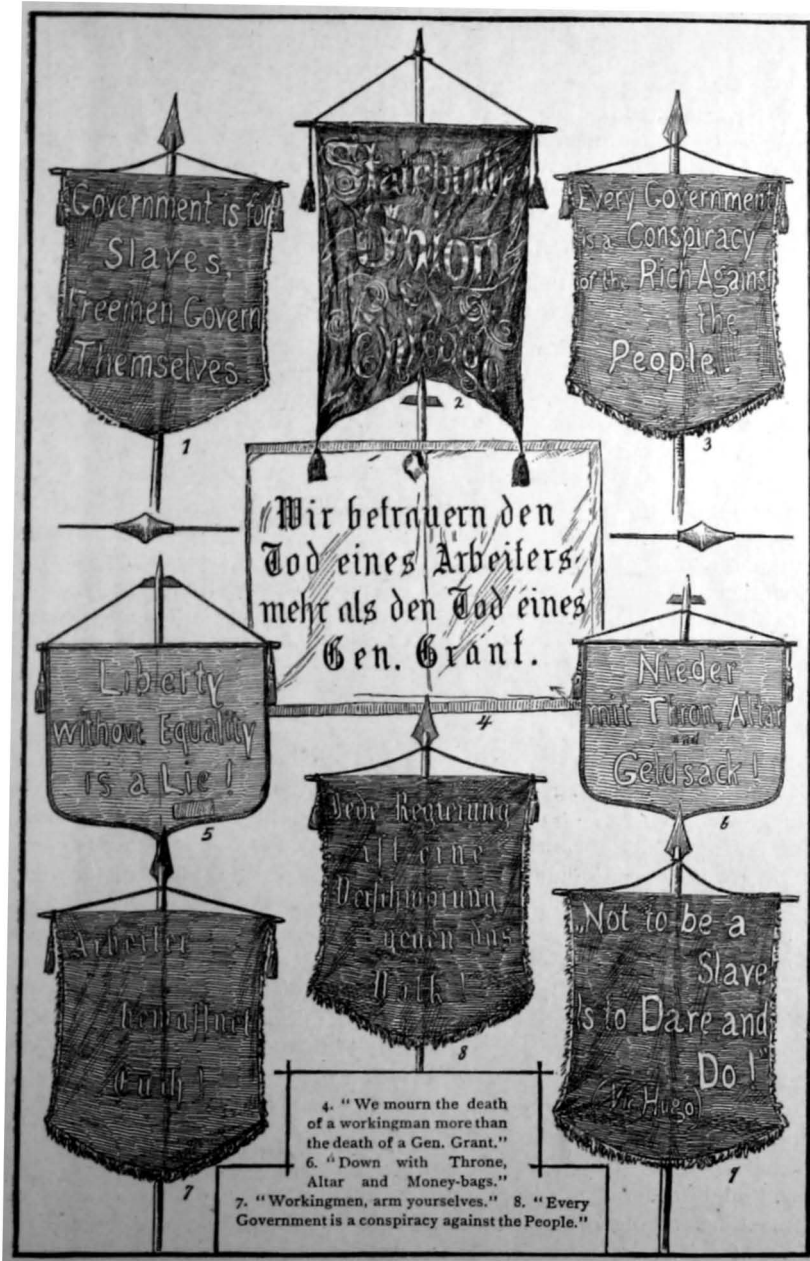 Government is for
Slaves,
Freemen Govern
Themselves
1
Union
2
Every Government
is a Conspiracy
of the Rich Against
the
People.
3
Wir betrauern den
Tod eines Arbeiters
mehr als den Tod eines
Gen. Grant.
4
Liberty
without Equality
is a Lie!
5
Nieder
mit Thron, Altar
und
Geldsack!
6
Arbeiter
bewaffnet
Euch!
7
Jede Regierung
ist eine
Verschwörung
gegen das
Volk!
8
„Not to be a
Slave
Is to Dare and
Do!"
(Vic. Hugo)
9
4. "We mourn the death
of a workingman more than
the death of a Gen. Grant."
6. "Down with Throne,
Altar and Money-bags."
7. "Workingmen, arm yourselves." 8. "Every
Government is a conspiracy against the People."